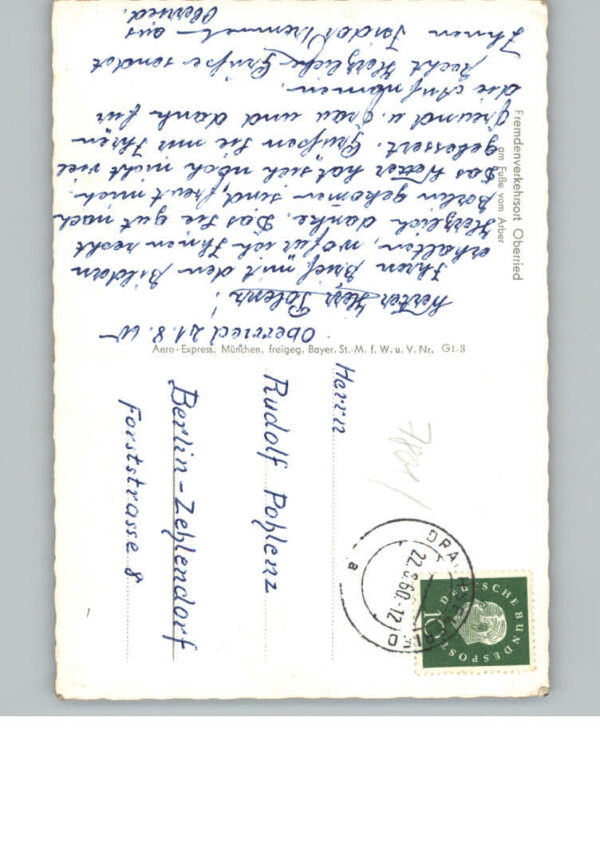 Fremdenverkehrsort Oberried
am Fuße vom Arber
Oberried 21.8.60
Werter Herr Polenz!
Ihren Brief mit den Bildern
erhalten, wofür ich Ihnen recht
Herzlich danke. Das Sie gut nach
Berlin gekomen sind, freut mich.
Das Wetter hat sich noch nicht viel
gebessert. Grüßen Sie mir Ihren
Freund u. Frau und dank für
die Aufnahmen.
Recht Herzliche Grüße sendet
Ihnen Isidor aus
Oberried.
Aero-Express, München, freigeg. Bayer. St.-M. f. W. u. V. Nr. G1-3
Herrn
Rudolf Pohlenz
Berlin-Zehlendorf
Forststrasse 8
22.8.60-12
a
DEUTSCHE BUNDESPOST
10